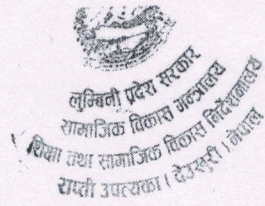 लुम्बिनी प्रदेश सरकार
सामाजिक विकास मन्त्रालय
शिक्षा तथा सामाजिक विकास निर्देशनालय
राप्ती उपत्यका (देउखुरी) नेपाल